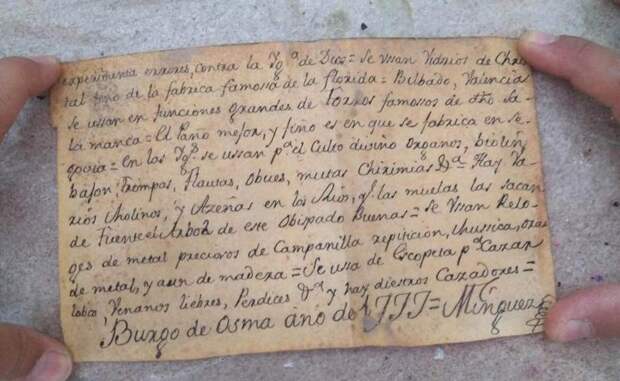 experimenta errores, contra la Yg.ª de Dios = Se ussan Vidrios de Chris
tal fino de la fabrica famosa de la florida = Belbado, Valencia
se ussan en funciones grandes de toros famosos de dho Sa-
lamanca = El Pano mejor, y fino es en que se fabrica en Se-
govia = en las Ygs. se ussan p.ª el Culto divino organos, biolin
bajon, trompas, flautas, Obues, Chirimias &ª = Hay Va-
rios Molinos, y Azeñas en los q.e las muelas las sacan
de Fuentelarbol de este Obispado Buenas = Se Vsan Relo-
ges de metal preciosos de Campanilla repiticion, Mussica,
de metal, y aun de madera = Se ussa de Escopeta p.ª Cazar
lobos, Venanos liebres, Perdices &ª y hay diestros Cazadores =
Burgo de Osma año de 1777 = Minguez